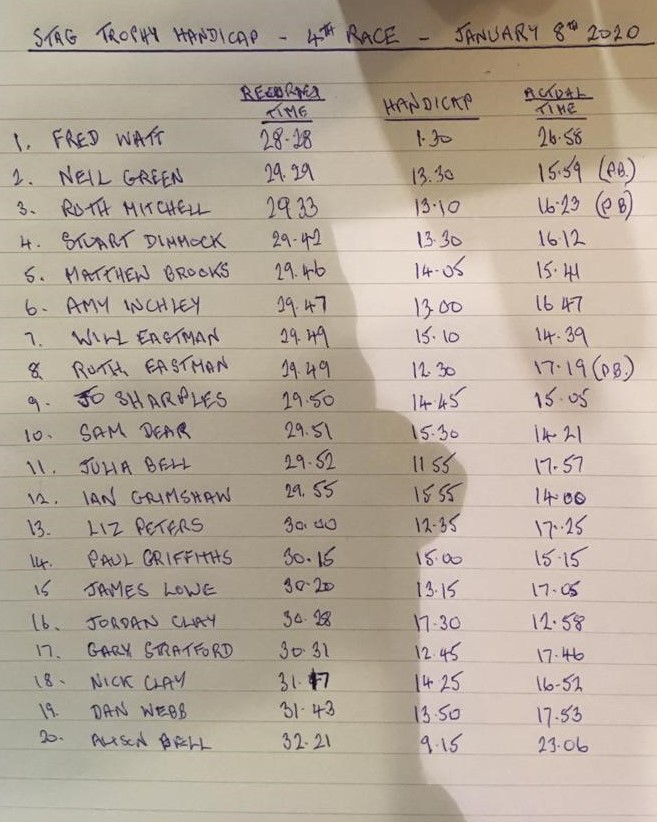 STAG TROPHY HANDICAP - 4TH RACE - JANUARY 8TH 2020
RECORDED TIME HANDICAP ACTUAL TIME
1. FRED WATT 28.28 1.30 26.58
2. NEIL GREEN 29.29 13.30 15.59 (PB.)
3. RUTH MITCHELL 29 33 13.10 16.23 (PB)
4. STUART DIMMOCK 29.42 13.30 16.12
5. MATTHEW BROOKS 29.46 14.05 15.41
6. AMY INCHLEY 29.47 13.00 16 47
7. WILL EASTMAN 29.49 15.10 14.39
8 RUTH EASTMAN 29.49 12.30 17.19 (PB.)
9. JO SHARPLES 29.50 14.45 15.05
10. SAM DEAR 29.51 15.30 14.21
11. JULIA BELL 29.52 11 55 17.57
12. IAN GRIMSHAW 29.55 15 55 14.00
13. LIZ PETERS 30.00 12.35 17.25
14. PAUL GRIFFITHS 30.15 15.00 15.15
15 JAMES LOWE 30.20 13.15 17.05
16. JORDAN CLAY 30.28 17.30 12.58
17. GARY STRATFORD 30.31 12.45 17.46
18. NICK CLAY 31.17 14 25 16.52
19. DAN WEBB 31.43 13.50 17.53
20. ALISON BELL 32.21 9.15 23.06